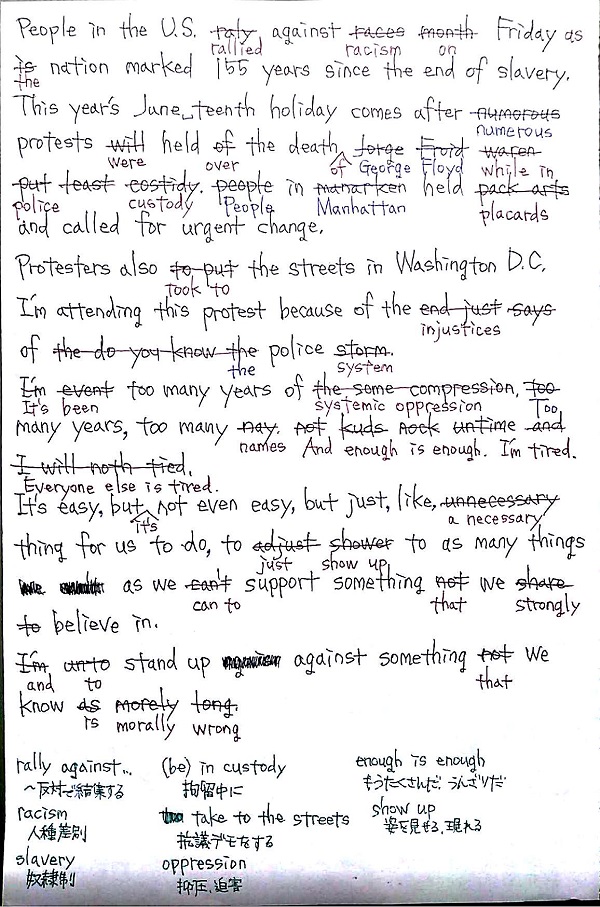 People in the U.S. raly against races month Friday as
rallied racism on
is nation marked 155 years since the end of slavery.
the
This year's June teenth holiday comes after numorous
numerous
protests will held of the death Jorge Froid waren
were over of George Floyd while in
put feast costidy. people in manarken held pack arts
police custody People Manhattan placards
and called for urgent change.
Protesters also to put the streets in Washington D.C.
took to
I'm attending this protest because of the end just says
injustices
of the do you know the police storm.
the system
I'm event too many years of the some compression, too
It's been systemic oppression Too
many years, too many nay. not kuds nock untime and
names And enough is enough. I'm tired.
I will noth tied.
Everyone else is tired.
It's easy, but not even easy, but just, like, unnecessary
it's a necessary
thing for us to do, to adjust shower to as many things
just show up
as we can't support something not we share
can to that strongly
to believe in.
I'm unto stand up against something not we
and to that
know as morely tong.
is morally wrong
rally against.. (be) in custody enough is enough
〜反対で結集する 拘留中に もうたくさんだ、うんざりだ
racism take to the streets show up
人種差別 抗議デモをする 姿を見せる、現れる
slavery oppression
奴隷制 抑圧、迫害